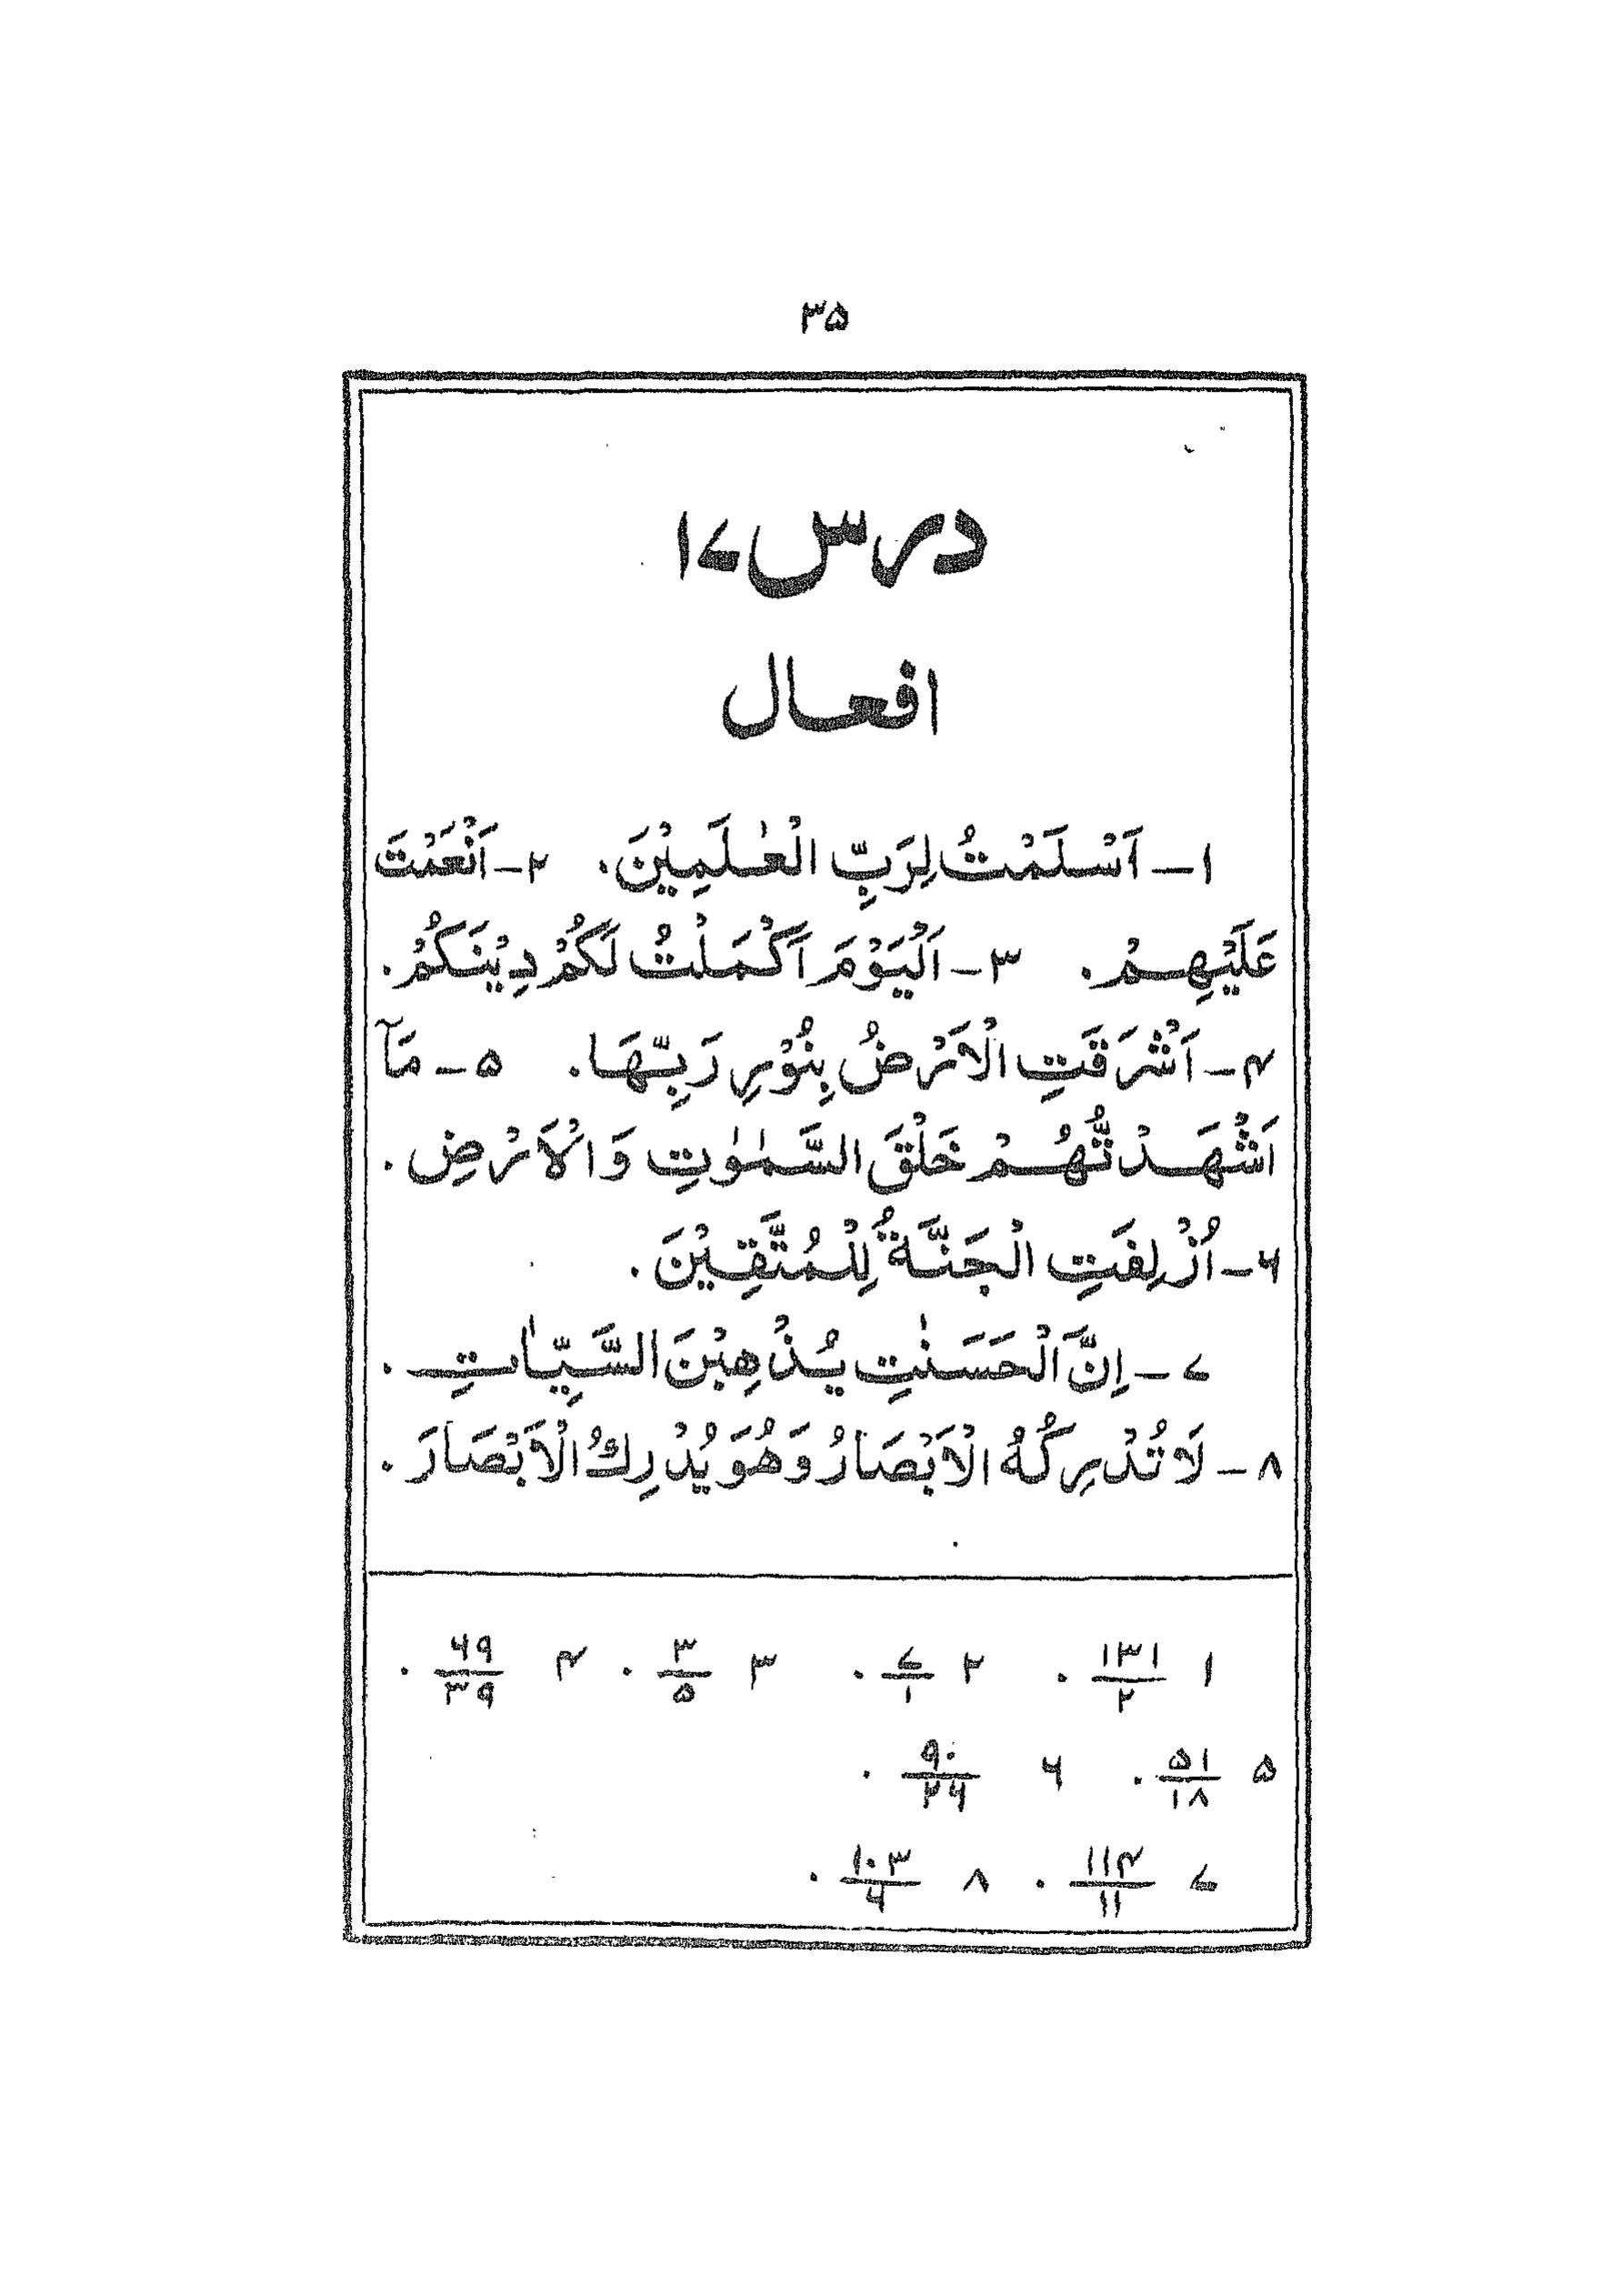 ۳۵
درس ۱۷
افعال
۱- اَسْلَمْتُ لِرَبِّ الْعٰلَمِيْنَ. ۲- اَنْعَمْتَ
عَلَيْهِمْ. ۳- اَلْيَوْمَ اَكْمَلْتُ لَكُمْ دِيْنَكُمْ.
۴- اَشْرَقَتِ الْاَرْضُ بِنُوْرِ رَبِّهَا. ۵- مَآ
اَشْهَدْتُّهُمْ خَلْقَ السَّمٰوٰتِ وَالْاَرْضِ.
۶- اُزْلِفَتِ الْجَنَّةُ لِلْمُتَّقِيْنَ.
۷- اِنَّ الْحَسَنٰتِ يُذْهِبْنَ السَّيِّاٰتِ.
۸- لَا تُدْرِكُهُ الْاَبْصَارُ وَهُوَ يُدْرِكُ الْاَبْصَارَ.
۱ ۱۳۱/۲. ۲ ۷/۱. ۳ ۳/۵. ۴ ۶۹/۳۹.
۵ ۵۱/۱۸. ۶ ۹۰/۲۶.
۷ ۱۱۴/۱۱. ۸ ۱۰۳/۶.